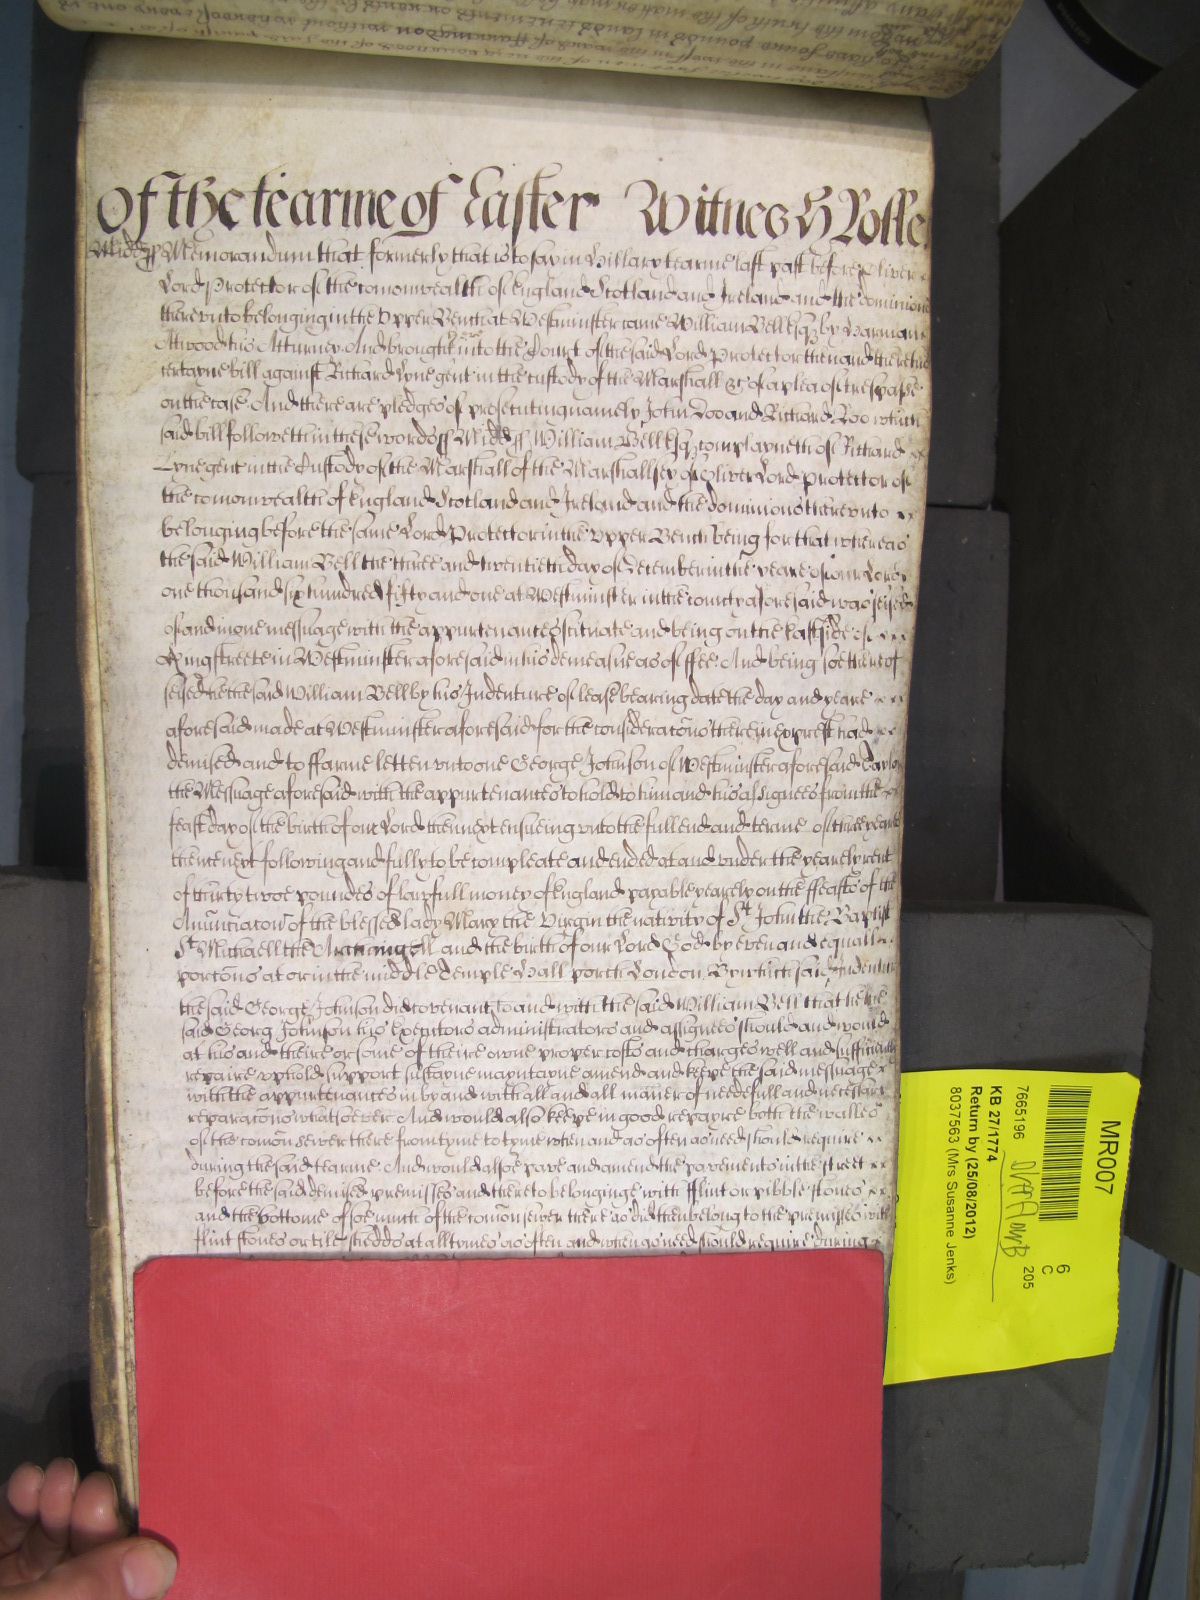 Of the tearme of Easter Witnes H Rolle
Midds Memorandum that formerly that is to say in Hillary tearme last past before Oliver
Lord Protector of the comonwealth of England Scotland and Ireland and the dominions
therevnto belonging in the Vpper Bench at Westminster came William Bell Esqr by Harman
Atwood his Atturney And brought into the Court of the said Lord Protector then and there his
certayne bill against Richard Lyne gent in the custody of the Marshall &c of a plea of trespasse
on the case And there are pledges of prosecuting namely John Doo and Richard Roo which
said bill followeth in these words ss Midds ss William Bell Esqr complayneth of Richard
Lyne gent in the Custody of the Marshall of the Marshallsey of Oliver Lord Protector of
the comonwealth of England Scotland and Ireland and the dominions therevnto
belonging before the same Lord Protector in the Vpper Bench being for that whereas
the said William Bell the three and twentieth day of December in the yeare of our Lord
one thousand six hundred fifty and one at Westminster in the county aforesaid was seised
of and in one messuage with the appurtenances scituate and being on the Eastside of
Kingstreete in Westminster aforesaid in his demeasne as of ffee And being soe thereof
seised he the said William Bell by his Indenture of lease bearing date the day and yeare
aforesaid made at Westminster aforesaid for the consideracons therein exprest had
demised and to ffarme letten vnto one George Johnson of Westminster aforesaid
the Messuage aforesaid with the appurtenances to hold to him and his assignes from the
feast day of the birth of our Lord then next ensueing vnto the full end and terme of three yeares
thence next following and fully to be compleate and ended at and vnder the yearely rent
of thirty twoe poundes of lawfull money of England payable yearely on the ffeasts of the
Anunciacon of the blessed lady Mary the Virgin the nativity of St John the Baptist
St Michaell the Archangell and the birth of our Lord God by even and equall
porcons at or in the middle Temple Hall porch London By which said Indenture
the said George Johnson did covenant to and with the said William Bell that he the
said Georg Johnson his Executors administrators and assignes should and would
at his and theire or some of theire owne proper costs and charges well and sufficiently
repaire vphold support sustayne mayntayne amend and keepe the said messuage
with the appurtenances in by and with all and all manner of needefull and necessary
reparacons whatsoever And would also keepe in good repayre both the walles
of the comon sewer there from tyme to tyme when and as often as need should require
during the said tearme And would alsoe pave and amend the pavements in the street
before the said demised premisses and thereto belonginge with fflint or pibble stones
and the bottome of soe much of the comon sewer there as did then belong to the premisses with
flint stones or tile shedds at all tymes as often and when as need should require during
MR007
6
C
205
7665196
KB 27/1774
Return by (25/08/2012)
8037563 (Mrs Susanne Jenks)